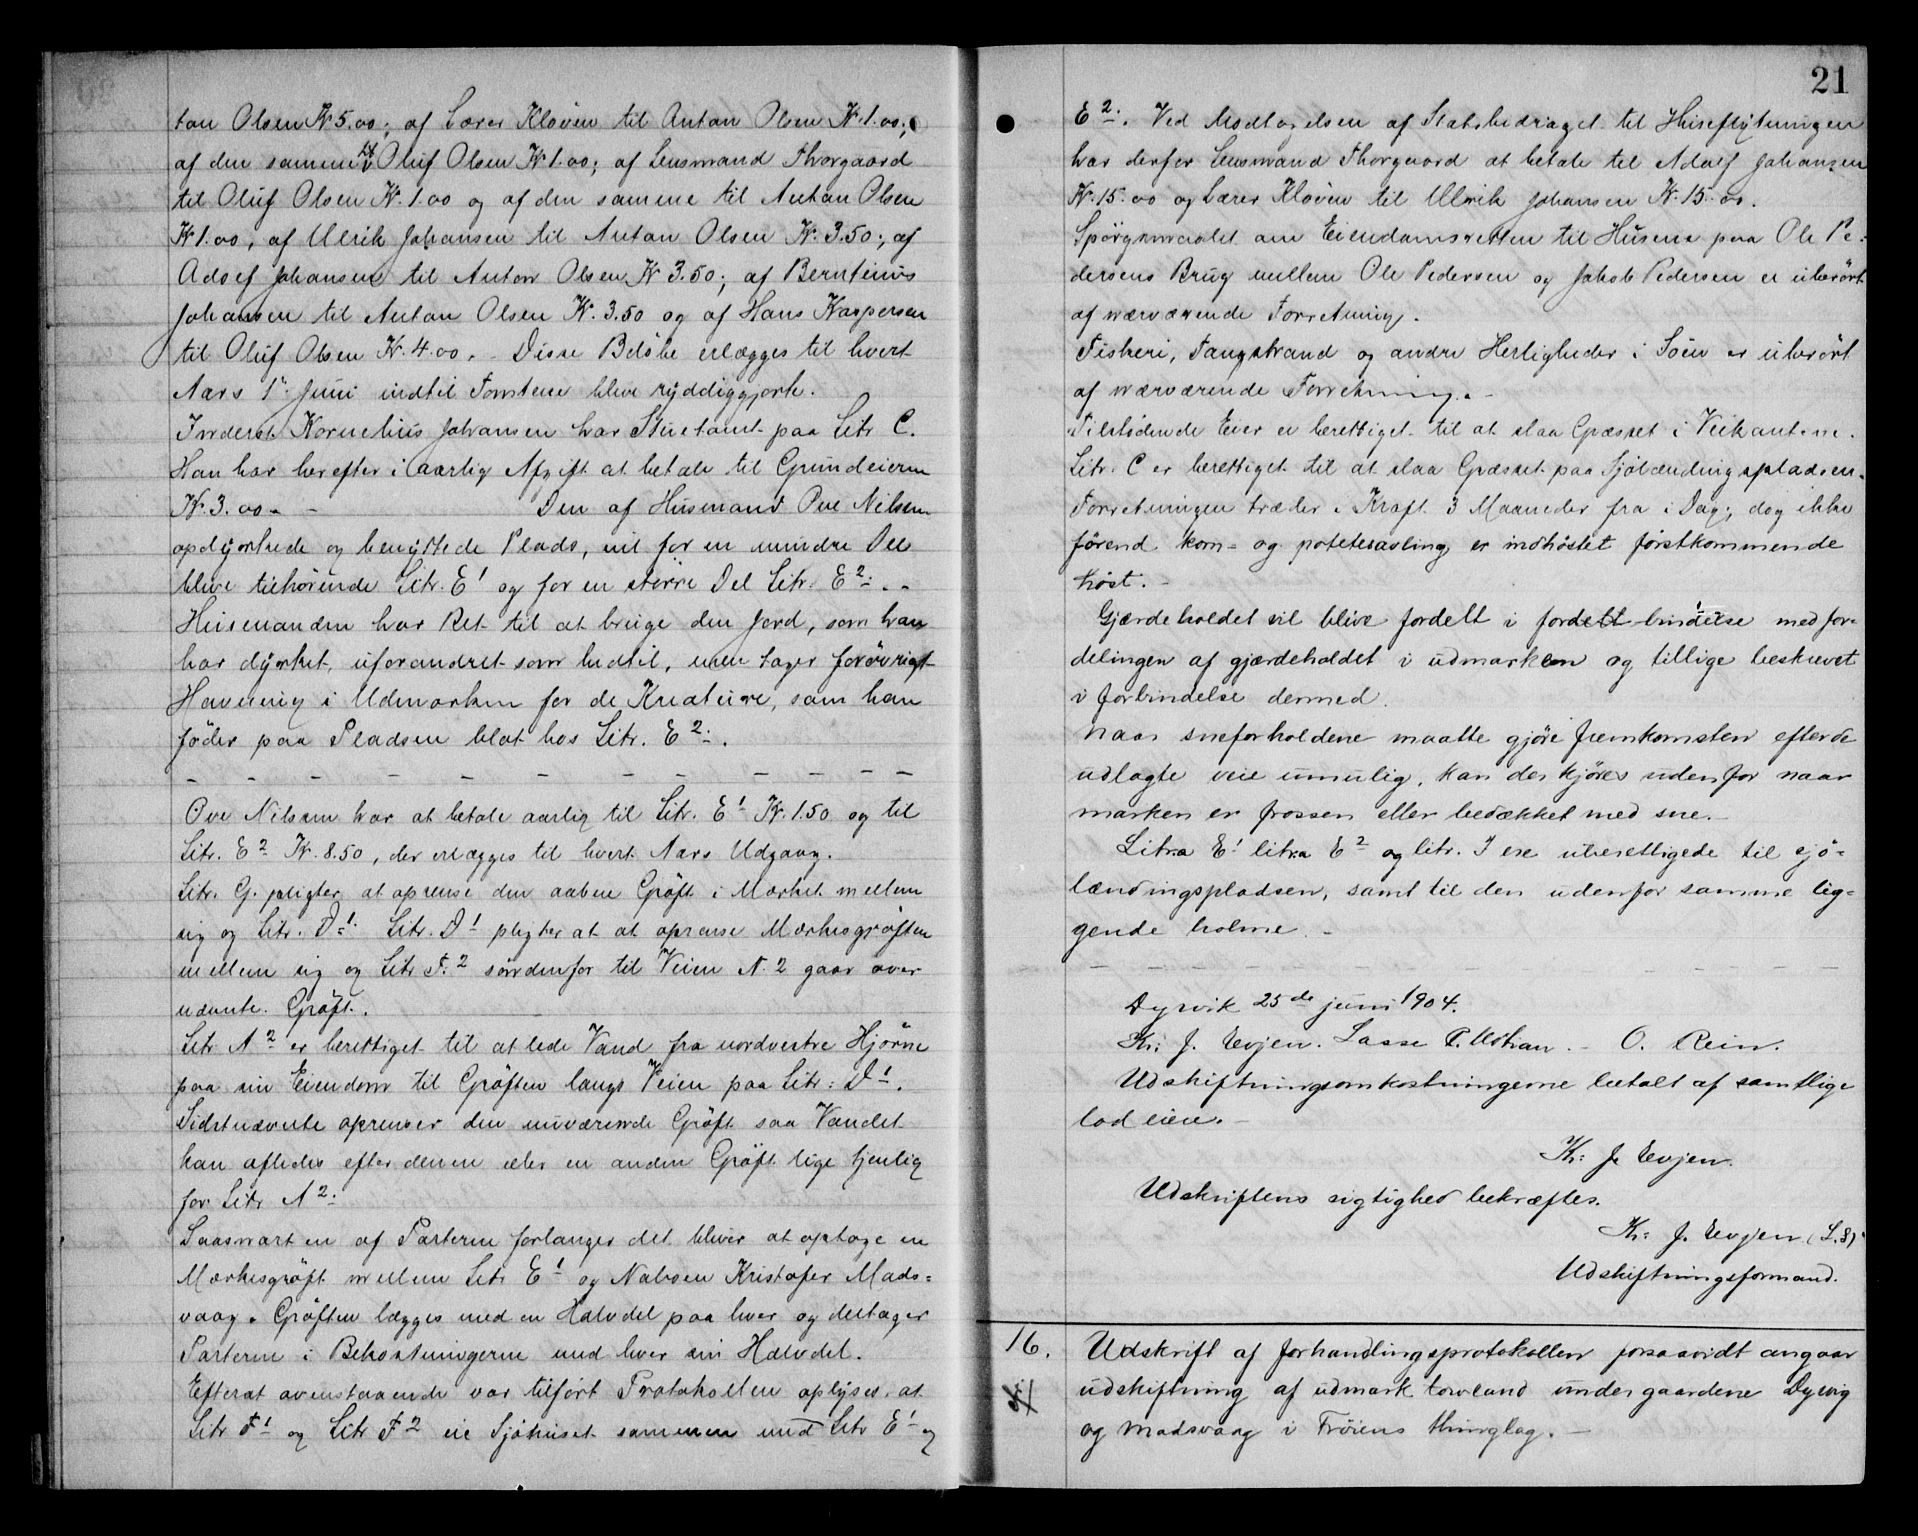 tan Olsen Kr 5.00; af Lærer Kløven til Anton Olsen Kr. 1.00;
af den samme til Oluf Olsen Kr 1.00; af Lensmand Thorgaard
til Oluf Olsen Kr. 1.00 og af den samme til Anton Olsen
Kr 1.00, af Ulrik Johansen til Anton Olsen Kr. 3.50; af
Adolf Johansen til Anton Olsen Kr 3.50; af Berntinus
Johansen til Anton Olsen Kr. 3.50 og af Hans Kaspersen
til Oluf Olsen Kr. 4.00. - Disse Beløbe erlægges til hvert
Aars 1ste Juni indtil Tomtene blive ryddiggjorte.
Inderst Kornelius Johansen har Stuetomt paa Litr C.
Han har herefter i aarlig Afgift at betale til Grundeieren
Kr. 3.00. - Den af Husmand Ove Nilsen
opdyrkede og benyttede Plads, vil for en mindre Del
blive tilhørende Litr. E1 og for en større Del Litr. E2. -
Husmanden har Ret til at bruge den Jord, som han
har dyrket, uforandret som hidtil, men tager forøvrigt
Havning i Udmarken for de Kreature, som han
føder paa Pladsen blot hos Litr. E2.
- - - - - - - - - - - -
Ove Nilsen har at betale aarlig til Litr. E1 Kr. 1.50 og til
Litr. E2 Kr. 8.50, der erlægges til hvert Aars Udgang.
Litr. G. pligter at oprense den aabne Grøft i Mærket mellem
sig og Litr. D1. Litr. D1 pligter at at oprense Mærkesgrøften
mellem sig og Litr F.2 søndenfor til Veien N. 2 gaar over
nævnte Grøft.
Litr A2 er berettiget til at lede Vand fra nordvestre Hjørne
paa sin Eiendom til Grøften langs Veien paa Litr: D1.
Sidstnævnte oprenser den nuværende Grøft saa Vandet
kan afledes efter denne eler en anden Grøft lige tjenlig
for Litr A2.
Saasnart en af Parterne forlanger det bliver at optage en
Mærkesgrøft mellem Litr E1 og Naboen Kristofer Mads=
vaag. Grøften lægges med en Halvdel paa hver og deltager
Parterne i Bekostningerne med hver sin Halvdel.
Efterat ovenstaaende var tilført Protokollen oplyses at
Litr F1 og Litr F2 eie Sjøhuset sammen med Litr E1 og
21
E2. Ved Modtagelsen af Statsbidraget til Huseflytningen
har derfor Lensmand Thorgaard at betale til Adolf Johansen
Kr. 15.00 og Lærer Kløven til Ulrik Johansen Kr. 15.00.
Spørgsmaalet om Eiendomsretten til Husene paa Ole Pe=
dersens Brug mellem Ole Pedersen og Jakob Pedersen er uberørt
af nærværende Forretning.
Fiskeri, Tangstrand og andre Herligheder i Søen er uberørt
af nærværende Forretning. -
Tilstødende Eier er berettiget til at slaa Græsset i Veikantene.
Litr. C er berettiget til at slaa Græsset paa Sjølændingspladsen.
Forretningen træder i Kraft 3 Maaneder fra i Dag; dog ikke
førend korn- og potetesavling er indhøstet førstkommende
høst. -
Gjærdeholdet vil blive fordelt i fordelt bindelse med for-
delingen af gjærdeholdet i udmarken og tillige beskrevet
i forbindelse dermed.
Naar sneforholdene maatte gjøre fremkomsten efter de
udlagte veie umulig, kan der kjøres udenfor naar
marken er frossen eller bedækket med sne. -
Litra E1 litra E2 og litr. I ere uberettigede til sjø=
lændingspladsen, samt til den udenfor samme lig=
gende holme. -
- - - - - - - - - - - -
Dyrvik 25de juni 1904.
Kr: J. Evjen. Lasse P. Mohan. - O. Rein.
Udskiftningsomkostningerne betalt af samtlige
lodeiere. -
Kr: J. Evjen.
Udskriftens rigtighed bekræftes.
Kr: J. Evjen (L.S)
Udskiftningsformand.
16. Udskrift af forhandlingsprotokollen forsaavidt angaar
udskiftning af udmark tovland under gaardene Dyrvig
og Madsvaag i Frøiens thinglag. -